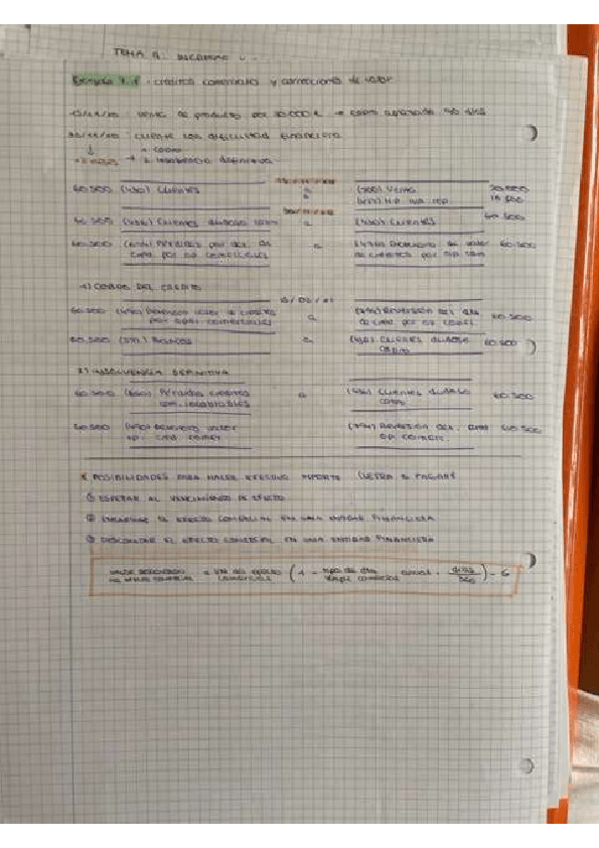 TEMA 4:
Ejemplo 4.1 - créditos comerciales y correcciones de valor
venta de productos por 50.000 € → cobro aplazado 90 días
cliente con dificultad financiera
↓ 1. cobro
→ 2. insolvencia definitiva
60.500 (430) Clientes a (700) Venta 50.000
(477) H.P. IVA rep 10.500
60.500 (436) Clientes dudoso cobro a (430) Clientes 60.500
60.500 (694) Pérdidas por det. de a (490) Deterioro de valor 60.500
cred. por op comerciales de créditos por op com
1) COBRO DEL CRÉDITO
60.500 (490) Deterioro valor de créditos a (794) Reversión det. de 60.500
por oper. comerciales de cred por op comer.
60.500 (572) Bancos a (436) Clientes dudoso 60.500
cobro
2) INSOLVENCIA DEFINITIVA
60.500 (650) Pérdidas créditos a (436) Clientes dudoso 60.500
com. incobrables cobro
60.500 (490) Deterioro valor (794) Reversión det. cred 60.500
op. cred comer. op comer.
POSIBILIDADES PARA HACER EFECTIVO IMPORTE (LETRA O PAGARÉ
① ESPERAR AL VENCIMIENTO DE EFECTO
② EL EFECTO COMERCIAL EN UNA ENTIDAD FINANCIERA
③ DESCONTAR EL EFECTO COMERCIAL EN UNA ENTIDAD FINANCIERA
VALOR DESCONTADO = VN DEL EFECTO (1 - tipo de dto anual · días
COMERCIAL simple comercial 360) - G